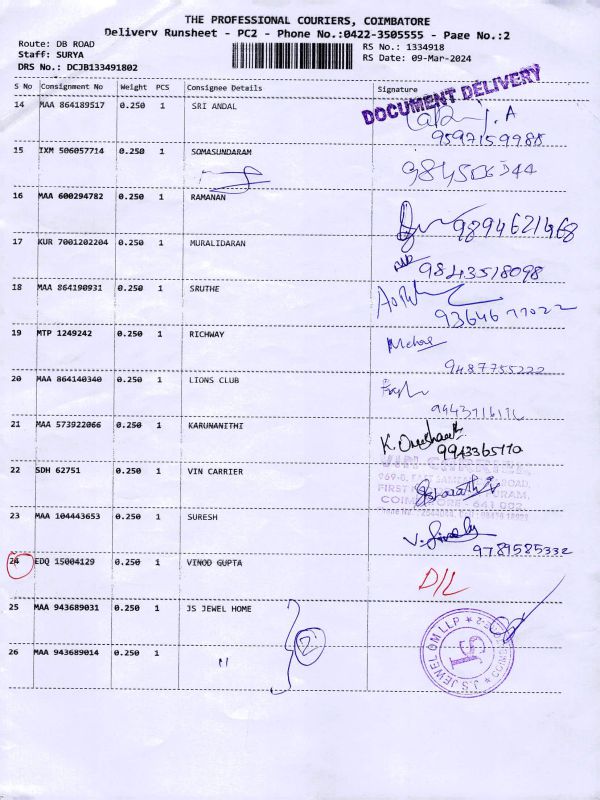 THE PROFESSIONAL COURIERS, COIMBATORE
Delivery Runsheet - PC2 - Phone No.:0422-3505555 - Page No.:2
Route: DB ROAD
Staff: SURYA
DRS No.: DCJB133491802
RS No.: 1334918
RS Date: 09-Mar-2024
S No Consignment No Weight PCS Consignee Details Signature
DOCUMENT DELIVERY
14 MAA 864189517 0.250 1 SRI ANDAL
9597159988
15 IXM 506057714 0.250 1 SOMASUNDARAM
16 MAA 600294782 0.250 1 RAMANAN
9894621468
17 KUR 7001202204 0.250 1 MURALIDARAN
9843518098
18 MAA 864190931 0.250 1 SRUTHE
9364677022
19 MTP 1249242 0.250 1 RICHWAY
9487755222
20 MAA 864140340 0.250 1 LIONS CLUB
21 MAA 573922066 0.250 1 KARUNANITHI
9943365770
22 SDH 62751 0.250 1 VIN CARRIER
23 MAA 104443653 0.250 1 SURESH
9789585332
24 EDQ 15004129 0.250 1 VINOD GUPTA D/L
25 MAA 943689031 0.250 1 JS JEWEL HOME
2
26 MAA 943689014 0.250 1 "
J.S.JEWEL OM LLP
JS